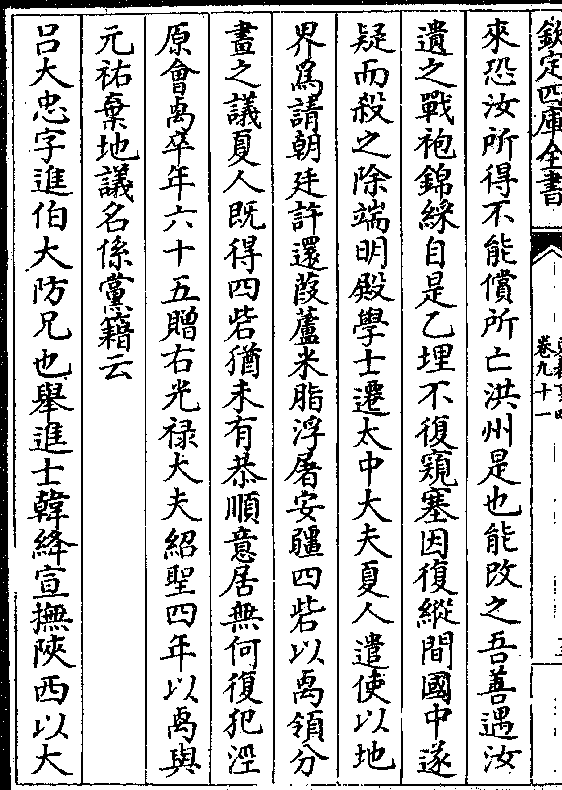 欽定四庫全書
卷九十一
來恐汝所得不能償所亡洪州是也能改之吾善遇汝
遺之戰袍錦綵自是乙埋不復窺塞因復縱間國中遂
疑而殺之除端明殿學士遷太中大夫夏人遣使以地
界為請朝廷許還葭蘆米脂浮屠安疆四砦以卨領分
畫之議夏人既得四砦猶未有恭順意居無何復犯涇
原會卨卒年六十五贈右光禄大夫紹聖四年以卨與
元祐棄地議名係黨籍云
吕大忠字進伯大防兄也舉進士韓絳宣撫陝西以大